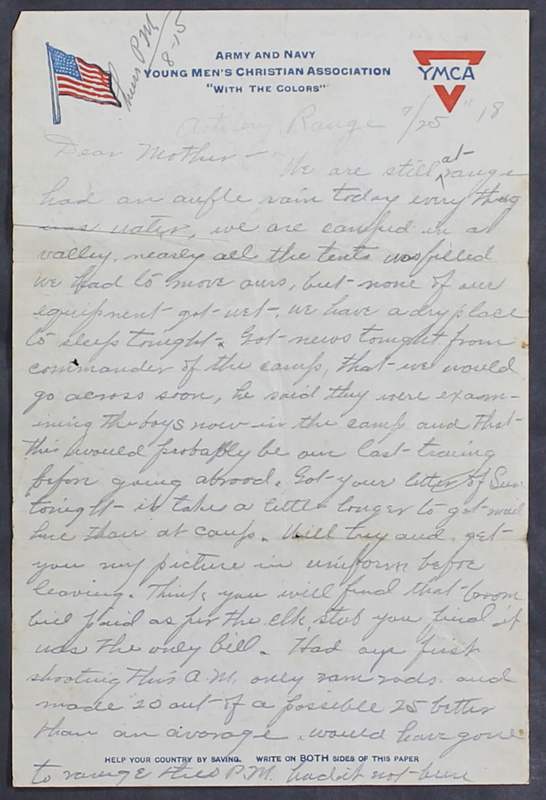 Thurs P.M.
8-15
ARMY AND NAVY
YOUNG MEN'S CHRISTIAN ASSOCIATION
"WITH THE COLORS"
YMCA
Artillery Range 7/25" 18
Dear Mother -
We are still at range
had an aufle rain today every thing
was water, we are camped in a
valley. nearly all the tents was filled
we had to move ours, but none of our
equipment got wet, we have a dry place
to sleep tonight. Got news tonight from
commander of the camp, that we would
go across soon, he said they were exam-
ining the boys now in the camp and that
this would probably be our last traing
before going abroad. Got your letter of Sun.
tonight it take a little longer to get mail
here than at camp. Will try and get
you my picture in uniform before
leaving. Think you will find that broom
bill paid as per the clk stub you find it
was the only bill. Had our first
shooting this A.M. only ram rods. and
made 20 out of a possible 25 better
than an avarage. would have gone
HELP YOUR COUNTRY BY SAVING. WRITE ON BOTH SIDES OF THIS PAPER
to range this P.M. had it not been